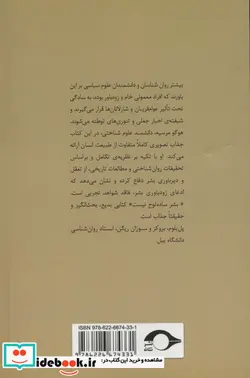 بیشتر روان شناسان و دانشمندان علوم سیاسی بر این
باورند که افراد معمولی خام و زودباور بوده، به سادگی
تحت تأثیر عوام‌فریبان و شارلاتان‌ها قرار می‌گیرند و
شیفته‌ی اخبار جعلی و تئوری‌های توطئه می‌شوند.
هوگو مرسیه، دانشمند علوم شناختی، در این کتاب
جذاب تصویری کاملاً متفاوت از طبیعت انسان ارائه
می‌کند. او با تکیه بر نظریه‌ی تکامل و براساس
تحقیقات روان‌شناختی و مطالعات تاریخی، از تعقل
و دیرباوری بشر دفاع کرده و نشان می‌دهد که
ادعای زودباوری بشر، فاقد شواهد تجربی است.
« بشر ساده‌لوح نیست» کتابی بدیع، بحث‌انگیز و
حقیقتاً جذاب است
پل بلوم، بروکز و سوزان ریگن، استاد روان‌شناسی
دانشگاه ییل
ISBN: 978-622-6674-33-1
9 786226 674331
مشاهده و خرید این کتاب در: